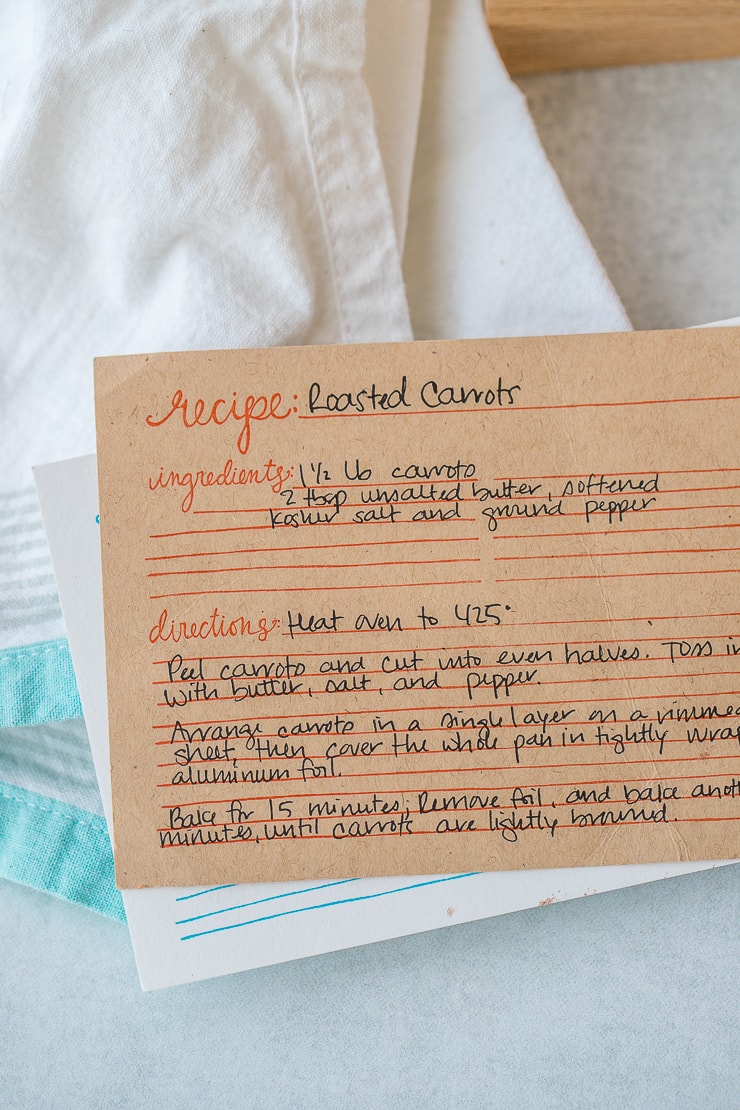 recipe: Roasted Carrots
ingredients: 1 1/2 lb carrots
2 tbsp unsalted butter, softened
kosher salt and ground pepper
directions: Heat oven to 425°
Peel carrots and cut into even halves. Toss in
with butter, salt, and pepper.
Arrange carrots in a single layer on a rimmed
sheet, then cover the whole pan in tightly wrap
aluminum foil.
Bake for 15 minutes; Remove foil, and bake anoth
minutes, until carrots are lightly browned.